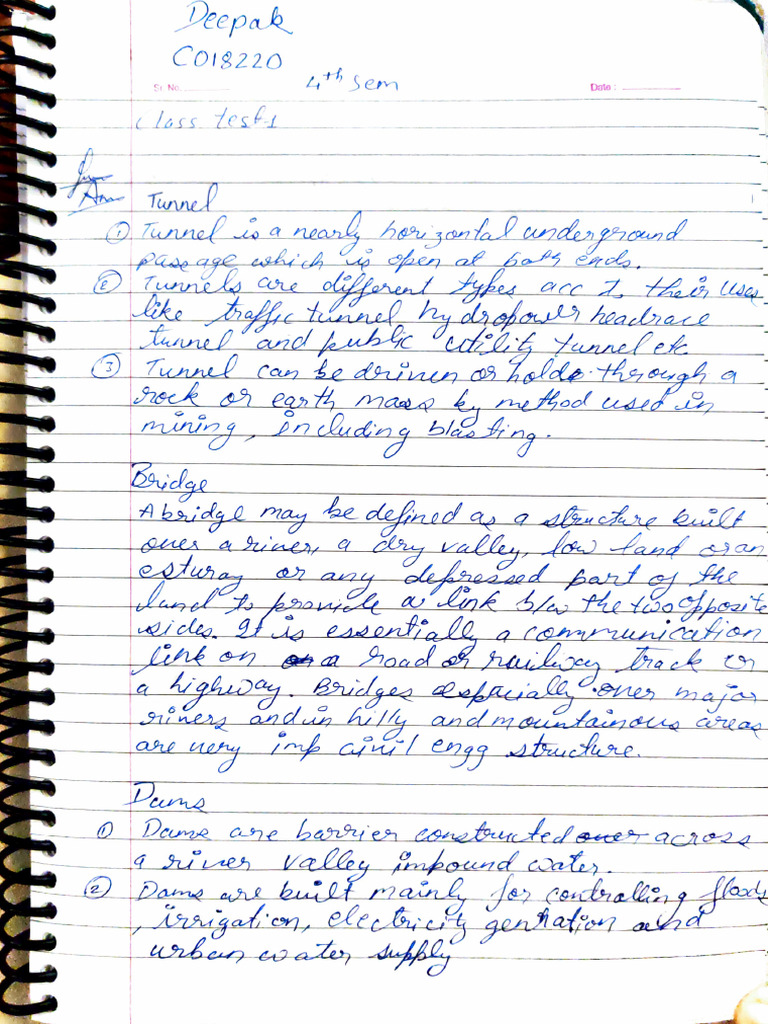 Deepak
CO18220
Sr. No.
4th Sem
Date :
Class test-1
Ans
Tunnel
① Tunnel is a nearly horizontal underground
passage which is open at both ends.
② Tunnels are different types acc to their uses
like traffic tunnel hydropower headrace
tunnel and public utility tunnel etc.
③ Tunnel can be driven or hold through a
rock or earth mass by method used in
mining, including blasting.
Bridge
A bridge may be defined as a structure built
over a river, a dry valley, low land or an
esturay or any depressed part of the
land to provide a link b/w the two opposite
sides. It is essentially a communication
link on a road or railway track or
a highway. Bridges especially over major
rivers and in hilly and mountainous areas
are very imp civil engg structure.
Dams
① Dams are barrier constructed over across
a river valley impound water.
② Dams are built mainly for controlling floods
, irrigation, electricity genration and
urban water supply